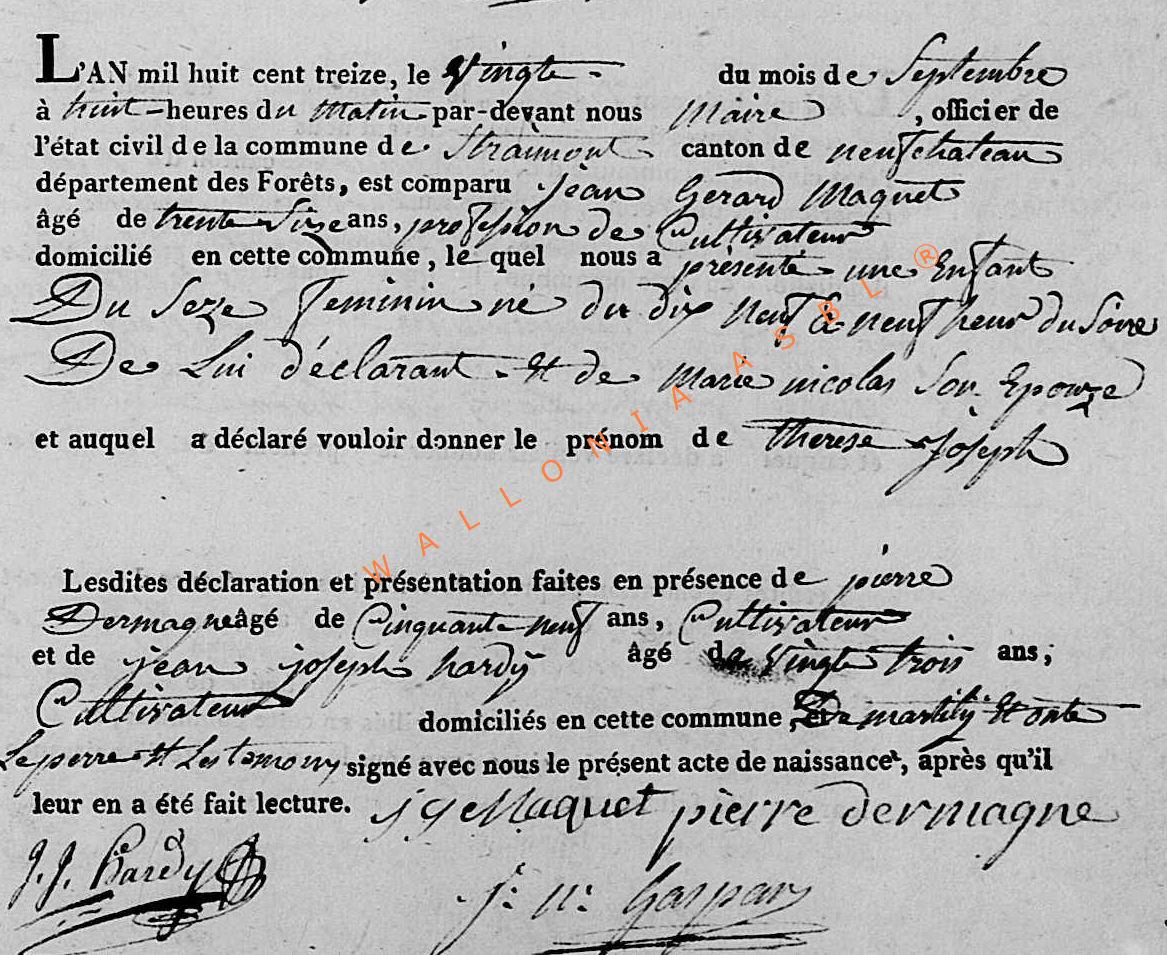 L'AN mil huit cent treize, le Vingte du mois de Septembre
à huit heures du Matin par-devant nous Maire , officier de
l'état civil de la commune de Straimont canton de neufchateau
département des Forêts, est comparu jean Gerard Maquet
âgé de trente Sixe ans, profession de Cultivateur
domicilié en cette commune, le quel nous a présenté une Enfant
Du Sexe feminin ne du dix neuf à neuf heur du Soire
De Lui déclarant Et de Marie nicolas Son Epouze
et auquel a déclaré vouloir donner le prénom de therese joseph
Lesdites déclaration et présentation faites en présence de pierre
Dermagne âgé de Cinquante neuf ans, Cultivateur
et de jean joseph hardy âgé de Vingte trois ans,
Cultivateur domiciliés en cette commune, De martilly Et onte
Le perre Et Les temoins signé avec nous le présent acte de naissance, après qu'il
leur en a été fait lecture. j g Maquet pierre dermagne
J. J. hardy j: n: Gaspar
WALLONIA ASBL ®